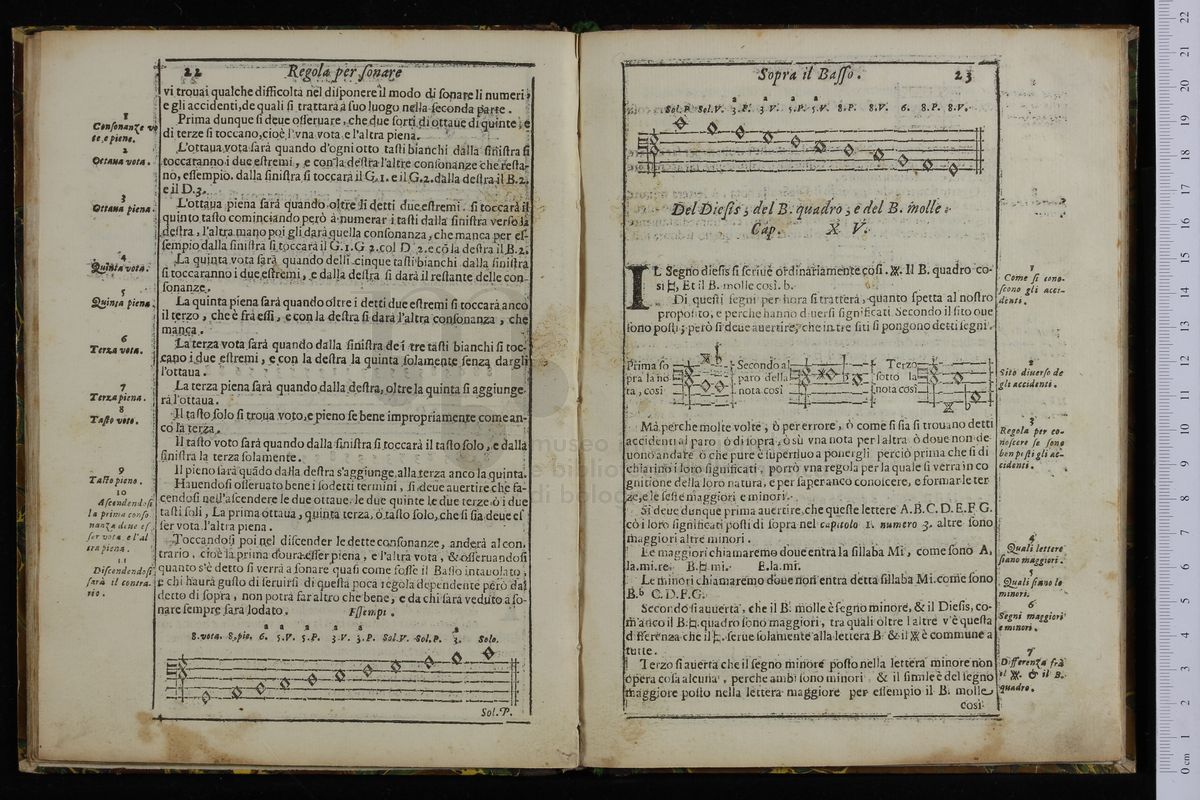 22
Regola per ſonare
vi trouai qualche difficolta nel diſponere il modo di ſonare li numeri,
e gli accidenti, de quali ſi trattarà a ſuo luogo nella ſeconda parte.
1
Conſonanze vo
te, e piene.
Prima dunque ſi deue oſſeruare, che due ſorti di ottaue di quinte, e
di terze ſi toccano, cioè l'vna vota e l'altra piena.
2
Ottaua vota.
L'ottaua vota ſarà quando d'ogni otto taſti bianchi dalla ſiniſtra ſi
toccaranno i due eſtremi, e con la deſtra l'altre conſonanze che reſta-
no, eſſempio. dalla ſiniſtra ſi toccarà il G.1. e il G.2. dalla deſtra il B.2.
e il D.3.
3
Ottaua piena.
L'ottaua piena ſarà quando oltre li detti due eſtremi. ſi toccarà il
quinto taſto cominciando però à numerar i taſti dalla ſiniſtra verſo la
deſtra, l'altra mano poi gli darà quella conſonanza, che manca per eſ-
ſempio dalla ſiniſtra ſi toccarà il G.1. G 2. col D 2. e cō la deſtra il B.2.
4
Quinta vota.
La quinta vota ſarà quando delli cinque taſti bianchi dalla ſiniſtra
ſi toccaranno i due eſtremi, e dalla deſtra ſi darà il reſtante delle con-
ſonanze.
5
Quinta piena.
La quinta piena ſarà quando oltre i detti due eſtremi ſi toccarà anco
il terzo, che è frà eſſi, e con la deſtra ſi darà l'altra conſonanza, che
manca.
6
Terza vota.
La terza vota ſarà quando dalla ſiniſtra de i tre taſti bianchi ſi toc-
cano i due eſtremi, e con la deſtra la quinta ſolamente ſenza dargli
l'ottaua.
7
Terza piena.
La terza piena ſarà quando dalla deſtra, oltre la quinta ſi aggiunge-
rà l'ottaua.
8
Taſto voto.
Il taſto ſolo ſi troua voto, e pieno ſe bene impropriamente come an-
co la terza.
Il taſto voto ſarà quando dalla ſiniſtra ſi toccarà il taſto ſolo, e dalla
ſiniſtra la terza ſolamente.
9
Taſto pieno.
Il pieno ſarà quādo dalla deſtra s'aggiunge alla terza anco la quinta.
10
Aſcendendoſi
la prima conſo
nanza deue eſ
ſer vota e l'al
tra piena.
Hauendoſi oſſeruato bene i ſodetti termini, ſi deue auertire che fa-
cendoſi nell'aſcendere le due ottaue, le due quinte le due terze ò i due
taſti ſoli, La prima ottaua, quinta terza, ò taſto ſolo, che ſi ſia deue eſ
ſer vota l'altra piena.
11
Diſcendendoſi
ſarà il contra-
rio.
Toccandoſi poi nel diſcender le dette conſonanze, anderà al con-
trario, cioè la prima dourà eſſer piena, e l'altra vota, & oſſeruandoſi
quanto s'è detto ſi verrà a ſonare quaſi come foſſe il Baſſo intauolato,
e chi haurà guſto di ſeruirſi di queſta poca regola dependente però dal
detto di ſopra, non potrà far altro che bene, e da chi ſarà veduto a ſo-
nare ſempre ſarà lodato. Eſſempi.
8. vota. 8. pie. 6. 5.V. 5.P. 3.V. 3.P. Sol.V. Sol.P. 3. Solo.
Sol.P.
Sopra il Baſſo.
23
Sol.P. Sol.V. 3.P. 3.V. 5.P. 5.V. 8.P. 8.V. 6. 8.P. 8.V.
Del Dieſis, del B. quadro, e del B. molle.
Cap. X V.
IL Segno dieſis ſi ſcriue ordinariamente coſi. ※. Il B. quadro co-
si ♮. Et il B. molle così. b.
1
Come ſi cono-
ſcono gli acci-
denti.
Di queſti ſegni per hora ſi tratterà, quanto ſpetta al noſtro
propoſito, e perche hanno diuerſi ſignificati Secondo il ſito oue
ſono poſti; però ſi deue auertire, che in tre ſiti ſi pongono detti ſegni.
2
Sito diuerſo de
gli accidenti.
Prima ſo
pra la no
ta, coſi
Secondo al
paro della
nota coſi
Terzo
ſotto la
nota coſi
3
Regola per co-
noſcere ſe ſono
ben poſti gli ac-
cidenti.
Mà perche molte volte, ò per errore, ò come ſi ſia ſi trouano detti
accidenti al paro ò di ſopra, ò sù vna nota per l altra ò doue non de-
uono andare ò che pure è ſuperfluo a ponergli perciò prima che ſi di
chiarino i loro ſignificati, porrò vna regola per la quale ſi verra in co
gnitione della loro natura, e per ſaper anco conoſcere, e formar le ter
ze, e le ſeſte maggiori e minori.
Si deue dunque prima auertire, che queſte lettere A.B.C.D.E.F.G.
cō i loro ſignificati poſti di ſopra nel capitolo 1. numero 3. altre ſono
maggiori altre minori.
4
Quali lettere
ſiano maggiori.
Le maggiori chiamaremo doue entra la ſillaba Mi, come ſono A.
la.mi.re. B.♮ mi. E.la.mi.
5
Quali ſiano le
minori.
Le minori chiamaremo doue non entra detta ſillaba Mi. come ſono
B.b C.D.F.G.
6
Segni maggiori
e minori.
Secondo ſi auuerta, che il B. molle è ſegno minore, & il Dieſis, co-
m'anco il B.♮. quadro ſono maggiori, tra quali oltre l altre v'è queſta
differenza che il ♮. ſerue ſolamente alla lettera B & il ※ è commune a
tutte.
7
Differenza frà
il ※. & il B.
quadro.
Terzo ſi auerta che il ſegno minore poſto nella lettera minore non
opera coſa alcuna, perche ambi ſono minori & il ſimile è del ſegno
maggiore poſto nella lettera maggiore per eſſempio il B. molle
così